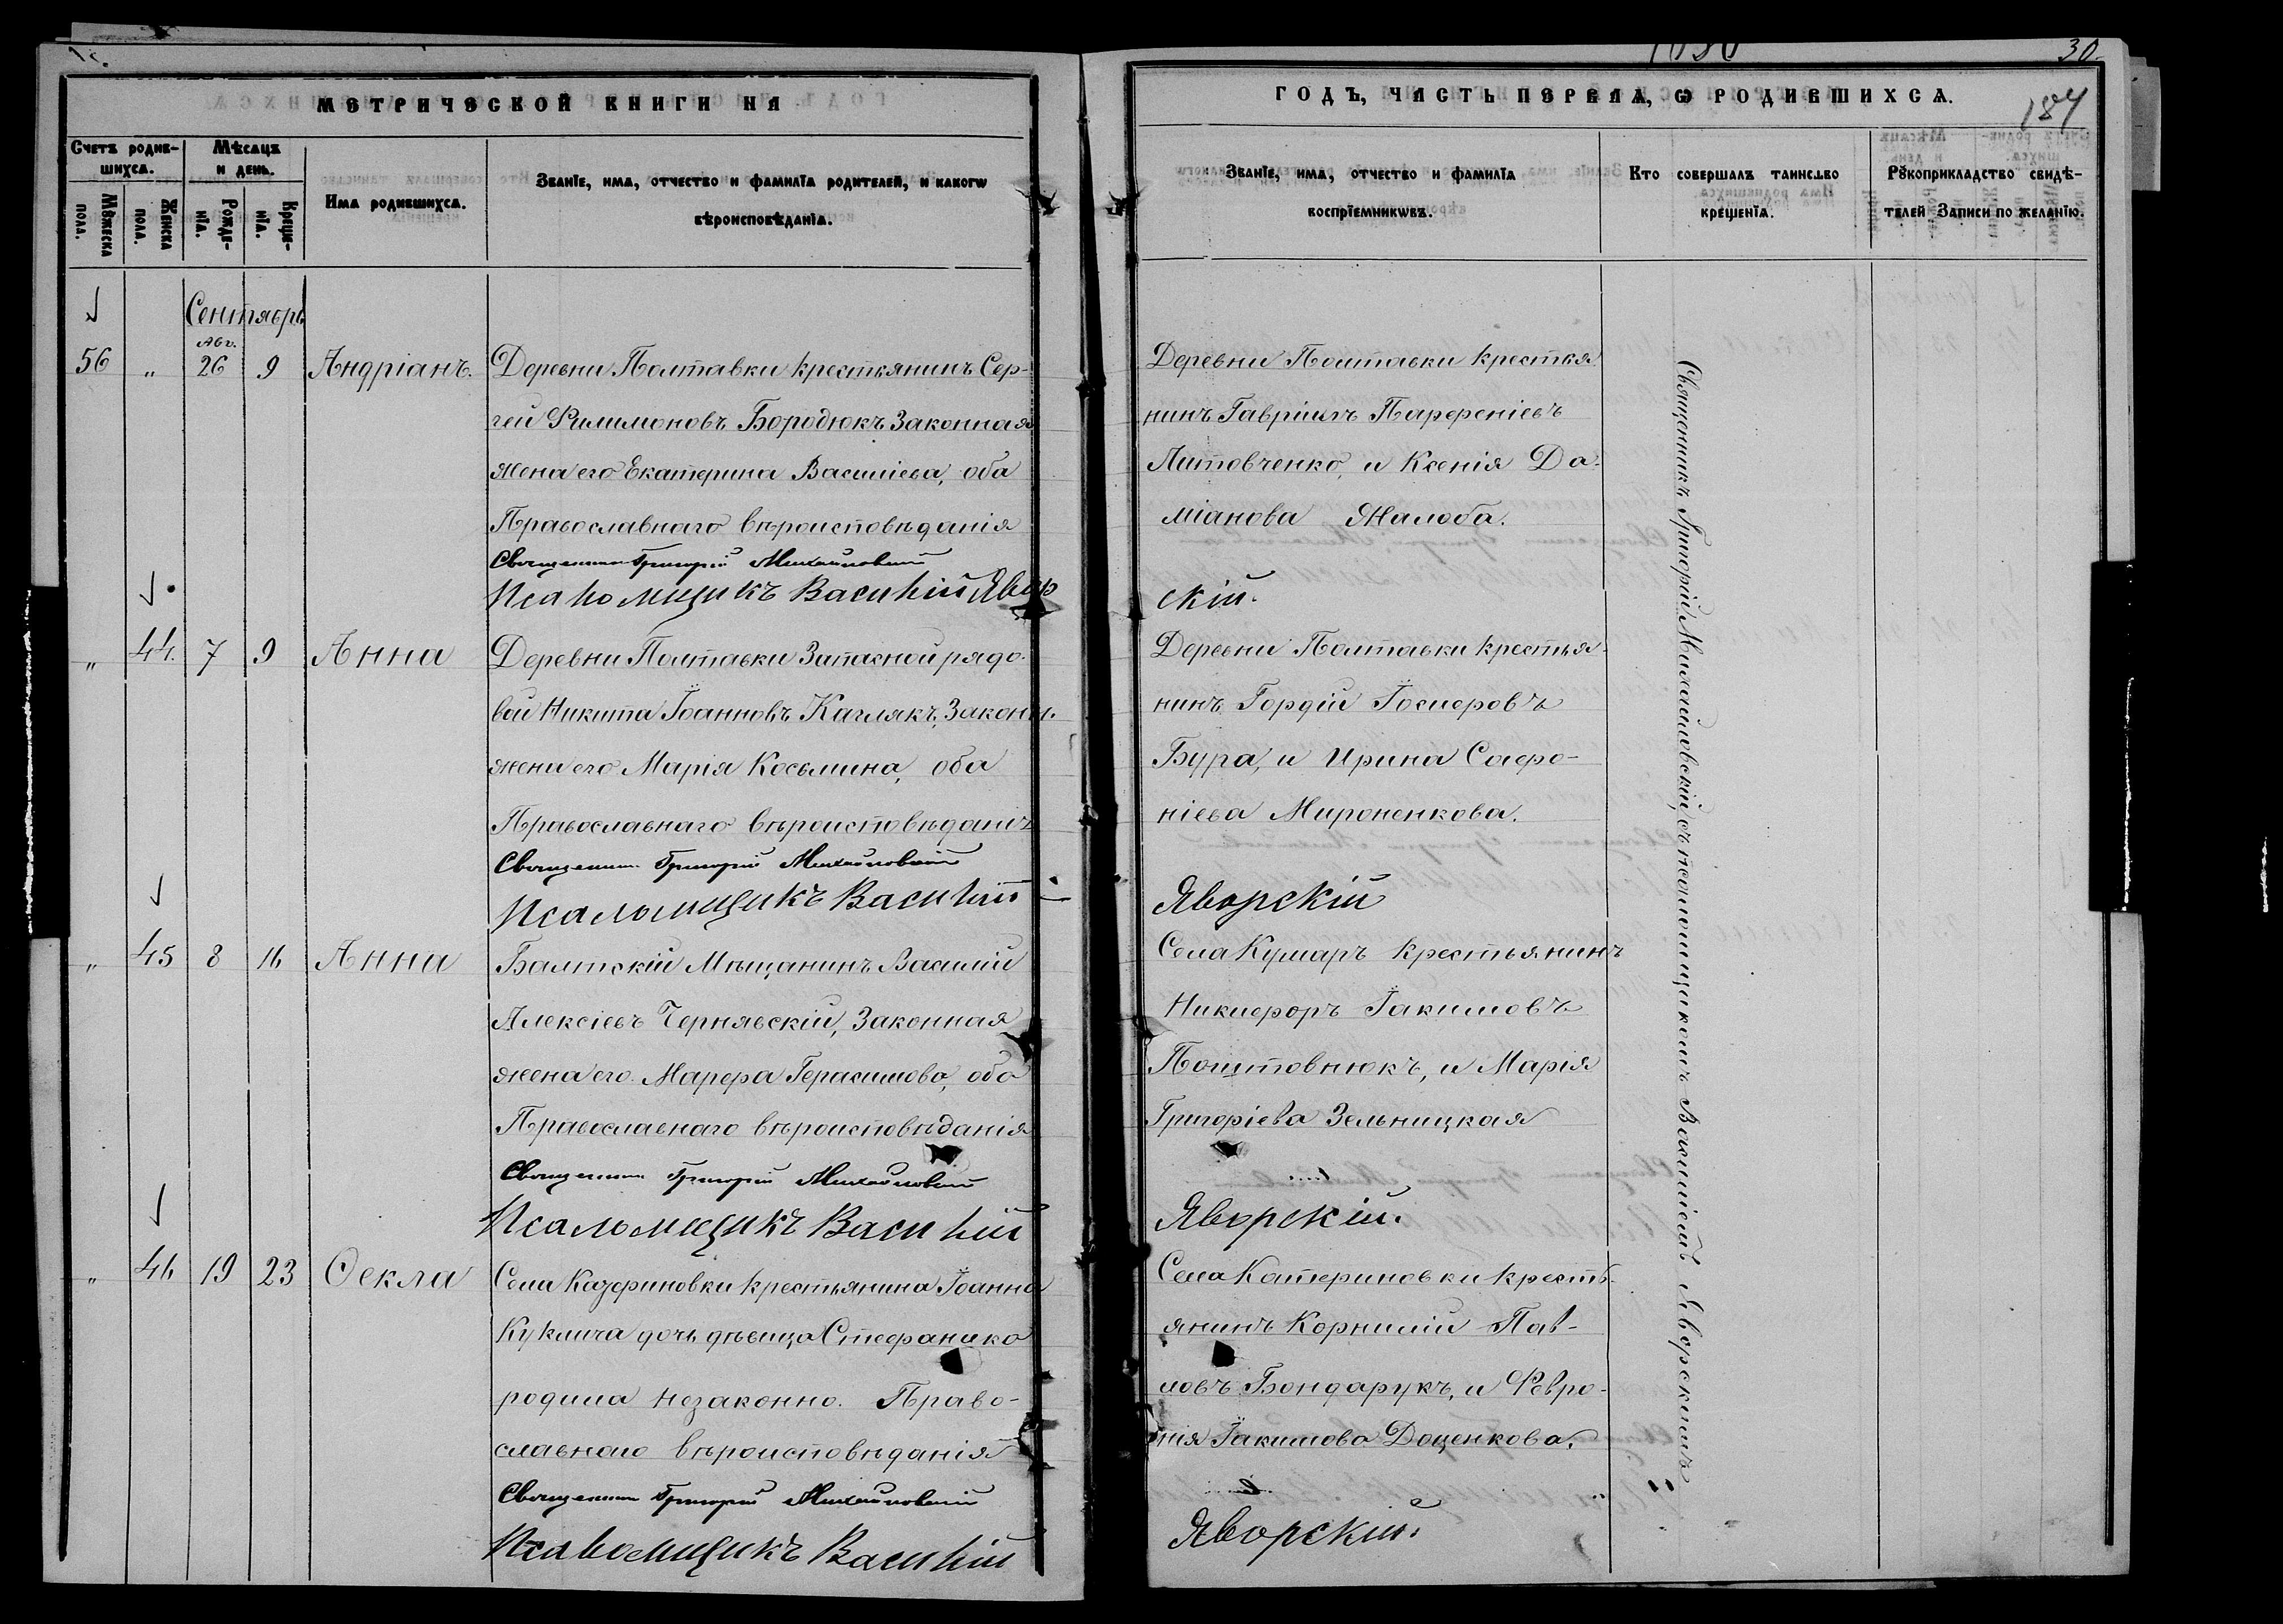 МЕТРИЧЕСКОЙ КНИГИ НА
Счетъ родив-
шихся.
Мѣсяцъ
и день.
Мужеска
пола.
Женска
пола.
Рожде-
нія.
Креще-
нія.
Имя родившихся.
Званіе, имя, отчество и фамилія родителей, и какогѡ
вѣроисповѣданія.
Сентябрь
56 „ Авг. 26 9 Андріанъ.
Деревни Полтавки крестьянинъ Сер-
гей Филимоновъ Бородюкъ Законная
жена его Екатерина Василіева, оба
Православнаго вѣроисповѣданія
Священникъ Григорій Михайловскій
Псаломщикъ Василій Явор
„ 44. 7 9 Анна
Деревни Полтавки Запасной рядо-
вой Никита Іоанновъ Каглякъ, Законн.
жена его Марія Косьмина, оба
Православнаго вѣроисповѣданія
Священникъ Григорій Михайловскій
Псаломщикъ Василій
„ 45 8 16 Анна
Балтскій Мѣщанинъ Василій
Алексіевъ Чернявскій, Законная
жена его Марфа Герасимова, оба
Православнаго вѣроисповѣданія
Священникъ Григорій Михайловскій
Псаломщикъ Василій
„ 46 19 23 Ѳекла
Села Катериновки крестьянина Іоанна
Куклича дочь дѣвица Стефанида
родила незаконно. Право-
славнаго вѣроисповѣданія
Священникъ Григорій Михайловскій
Псаломщикъ Василій
30.
187
ГОДЪ, ЧАСТЬ ПЕРВАЯ, Ѡ РОДИВШИХСЯ.
Званіе, имя, отчество и фамилія
воспріемникѡвъ.
Кто совершалъ таинство
крещенія.
Рукоприкладство свидѣ-
телей Записи по желанію.
Деревни Полтавки крестья-
нинъ Гавріилъ Парфеніевъ
Литовченко, и Ксенія Да-
міанова Жалоба.
скій.
Деревни Полтавки крестья-
нинъ Гордій Іосифовъ
Бура, и Ирина Софро-
ніева Мироненкова.
Яворскій
Села Кумаръ крестьянинъ
Никифоръ Іакимовъ
Полтовнюкъ, и Марія
Григоріева Зельницкая
Яворскій.
Села Катериновки кресть-
янинъ Корнилій Пав-
ловъ Бондарукъ, и Февро-
нія Іакимова Доценкова.
Яворскій.
Священникъ Григорій Михайловскій, съ псаломщикомъ Василіемъ Яворскимъ